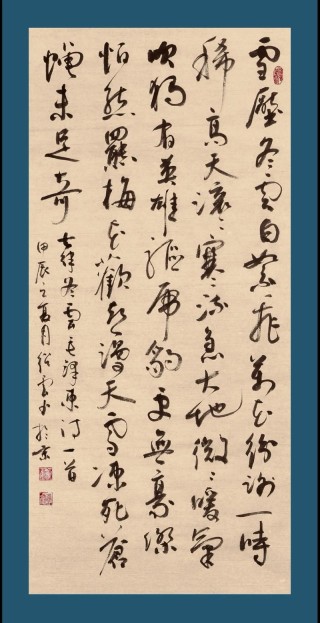 雪壓冬雲白絮飛萬花紛謝一時
稀高天滾々寒流急大地微々暖氣
吹獨有英雄驅虎豹更無豪傑
怕熊羆梅花歡喜漫天雪凍死蒼
蠅未足奇
七律冬雲毛澤東詩一首
甲辰之夏月於京